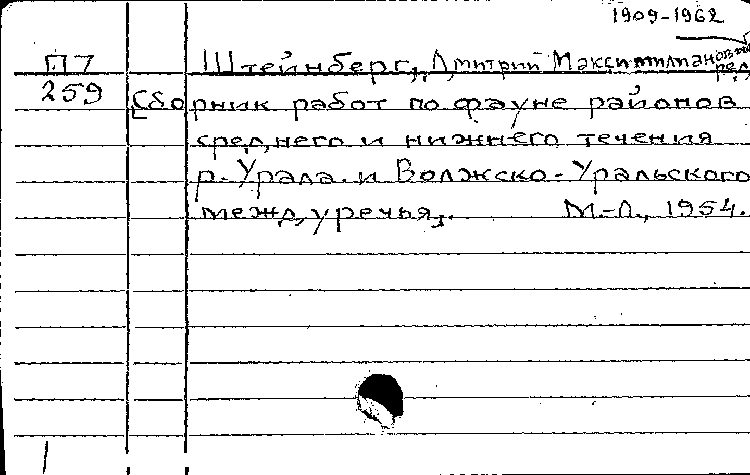 1909-1962
П7 Штейнберг, Дмитрий Максимилианович, ред.
259 [Сборник работ по фауне районов
среднего и нижнего течения
р. Урала и Волжско-Уральского
междуречья]. М.-Л., 1954.